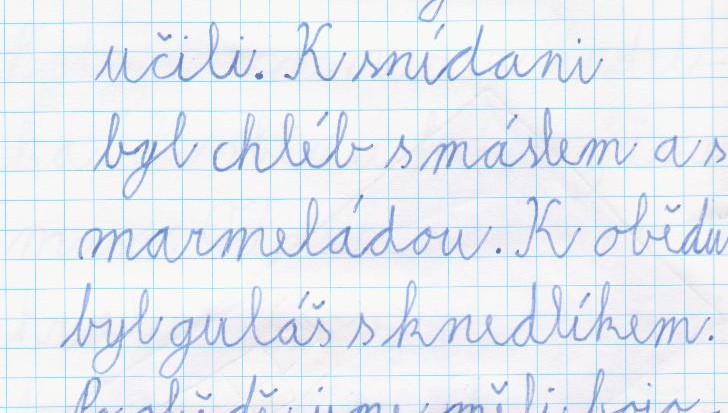 učili. K snídani
byl chléb s máslem a s
marmeládou. K obědu
byl guláš s knedlíkem.